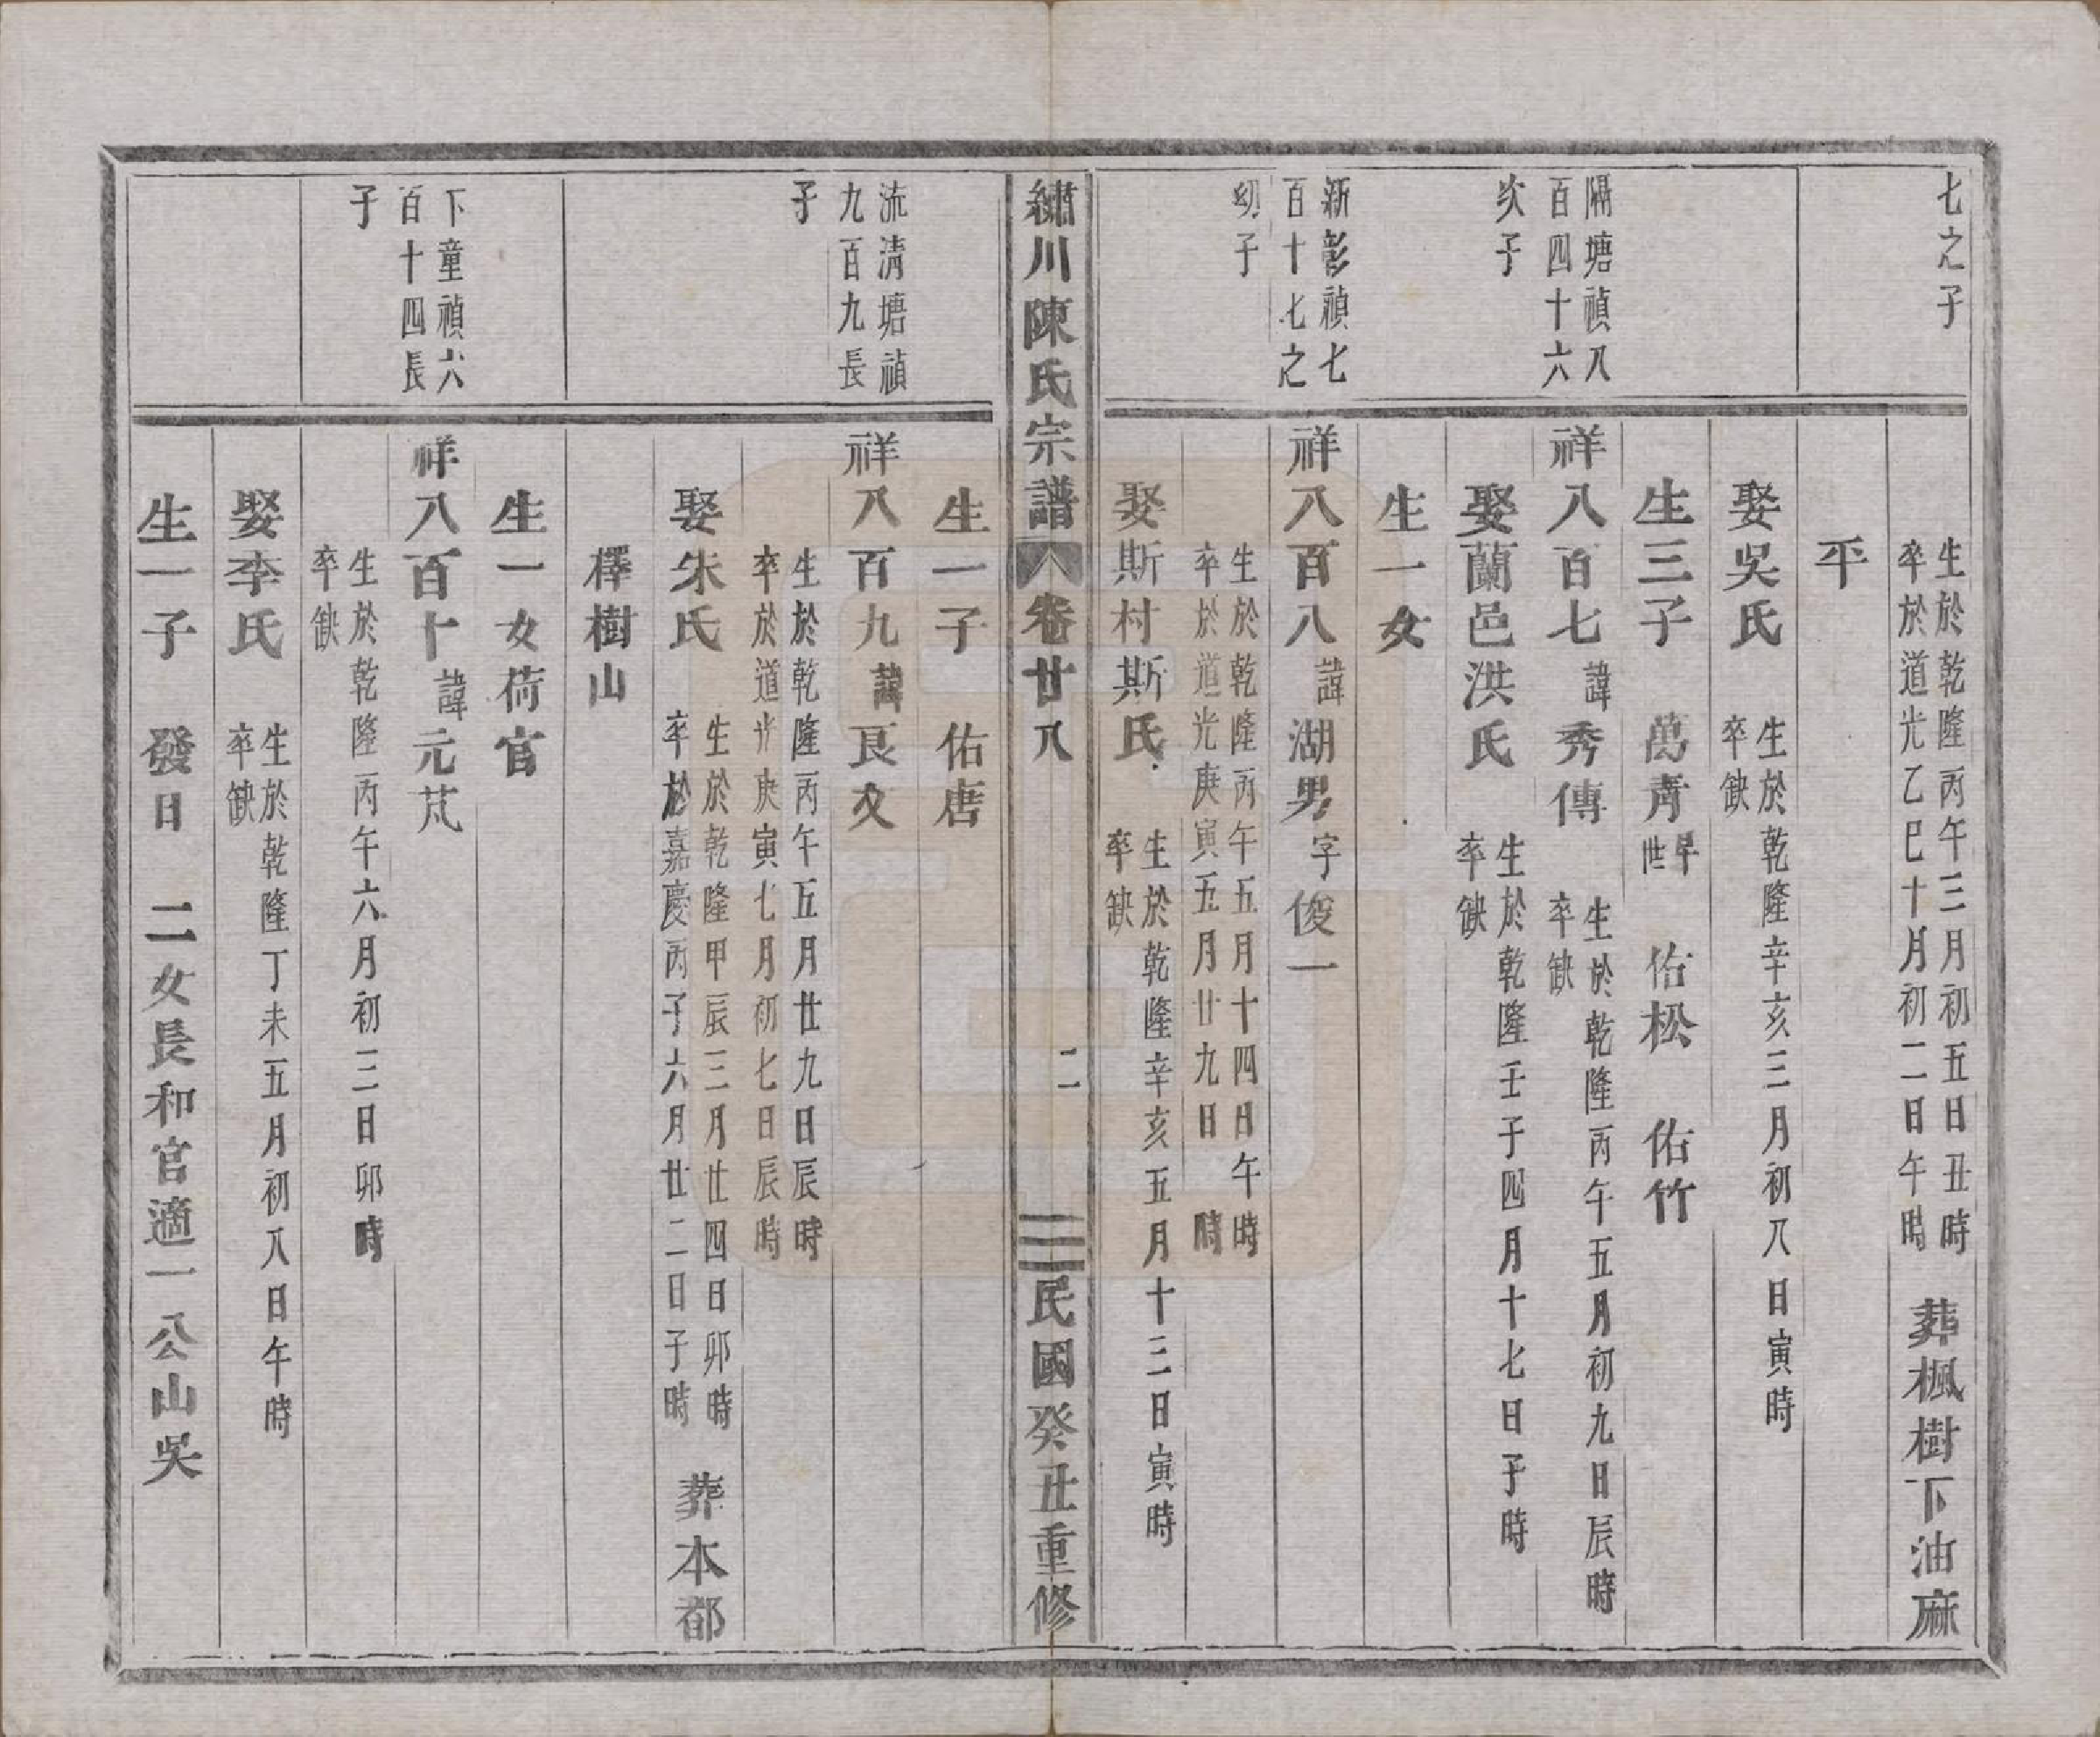 七之子
生於乾隆丙午三月初五日丑時
卒於道光乙巳十月初二日午時
葬楓樹下油麻
平
娶吳氏
生於乾隆辛亥三月初八日寅時
卒缺
生三子 萬青早世 佑松 佑竹
隔塘禎八
百四十六
次子
祥八百七諱秀傳
生於乾隆丙午五月初九日辰時
卒缺
娶蘭邑洪氏
生於乾隆壬子四月十七日子時
卒缺
生一女
新彰禎七
百十七之
幼子
祥八百八諱湖男字俊一
生於乾隆丙午五月十四日午時
卒於道光庚寅五月廿九日 時
娶斯村斯氏
生於乾隆辛亥五月十三日寅時
卒缺
繡川陳氏宗譜 卷廿八 二 民國癸丑重修
生一子 佑唐
流清塘禎
九百九長
子
祥八百九諱良久
生於乾隆丙午五月廿九日辰時
卒於道光庚寅七月初七日辰時
娶朱氏
生於乾隆甲辰三月廿四日卯時
卒於嘉慶丙子六月廿二日子時
葬本都
檡樹山
生一女荷官
下童禎六
百十四長
子
祥八百十諱元芃
生於乾隆丙午六月初三日卯時
卒缺
娶李氏
生於乾隆丁未五月初八日午時
卒缺
生一子 發日 二女長和官適一公山吳